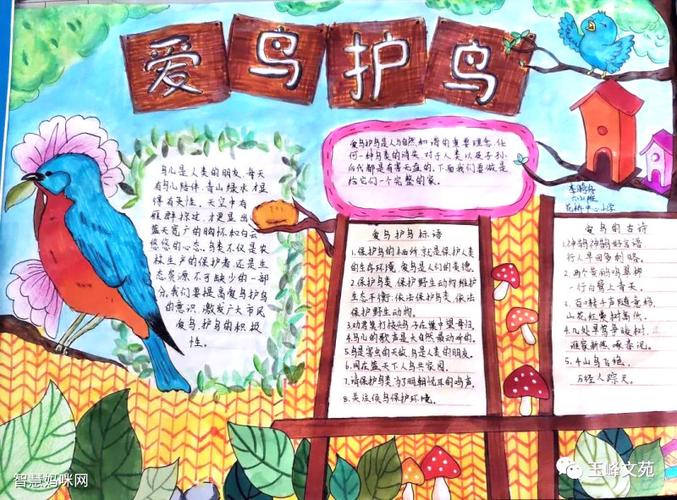 爱鸟护鸟
鸟儿是人类的朋友,每天
有鸟儿陪伴,青山绿水才显
得有灵性,天空中有
雁群掠过,才更显出
蓝天宽广的胸怀和白云
悠悠的心态,鸟类不仅是农
林生产的保护者,还是生
态资源不可缺少的一部
分,我们要提高爱鸟护鸟
的意识,激发广大市民
爱鸟,护鸟的积极
性。
爱鸟护鸟是人与自然和谐的重要理念,任
何一种鸟类的消失,对于人类以及子孙
后代都是有害无益的,下面我们要做是
给它们一个完整的家。
花桥中心小学
爱鸟护鸟标语
1.保护鸟的栖所就是保护人类
的生存环境,爱鸟是人们的美德。
2.保护鸟类,保护野生动物,维护
生态平衡;依法保护鸟类,依法
保护野生动物。
3.劝君莫打枝头鸟,子在巢中望母归。
4.鸟儿的歌声是大自然最动听的。
5.鸟是害虫的天敌,鸟是人类的朋友。
6.同在蓝天下人鸟共家园。
7.请保护鸟类,为了明朝悦耳的鸣声。
8.关注候鸟保护环境。
爱鸟的古诗
行人早回多利赂。
2.两个黄鹂鸣翠柳
一行白鹭上青天。
3.百啭千声随意移,
山花红紫树高低。
4.几处早莺争暖树,
谁家新燕啄春泥。
5.千山鸟飞绝,
万径人踪灭。
智慧妈咪网
玉峰文苑